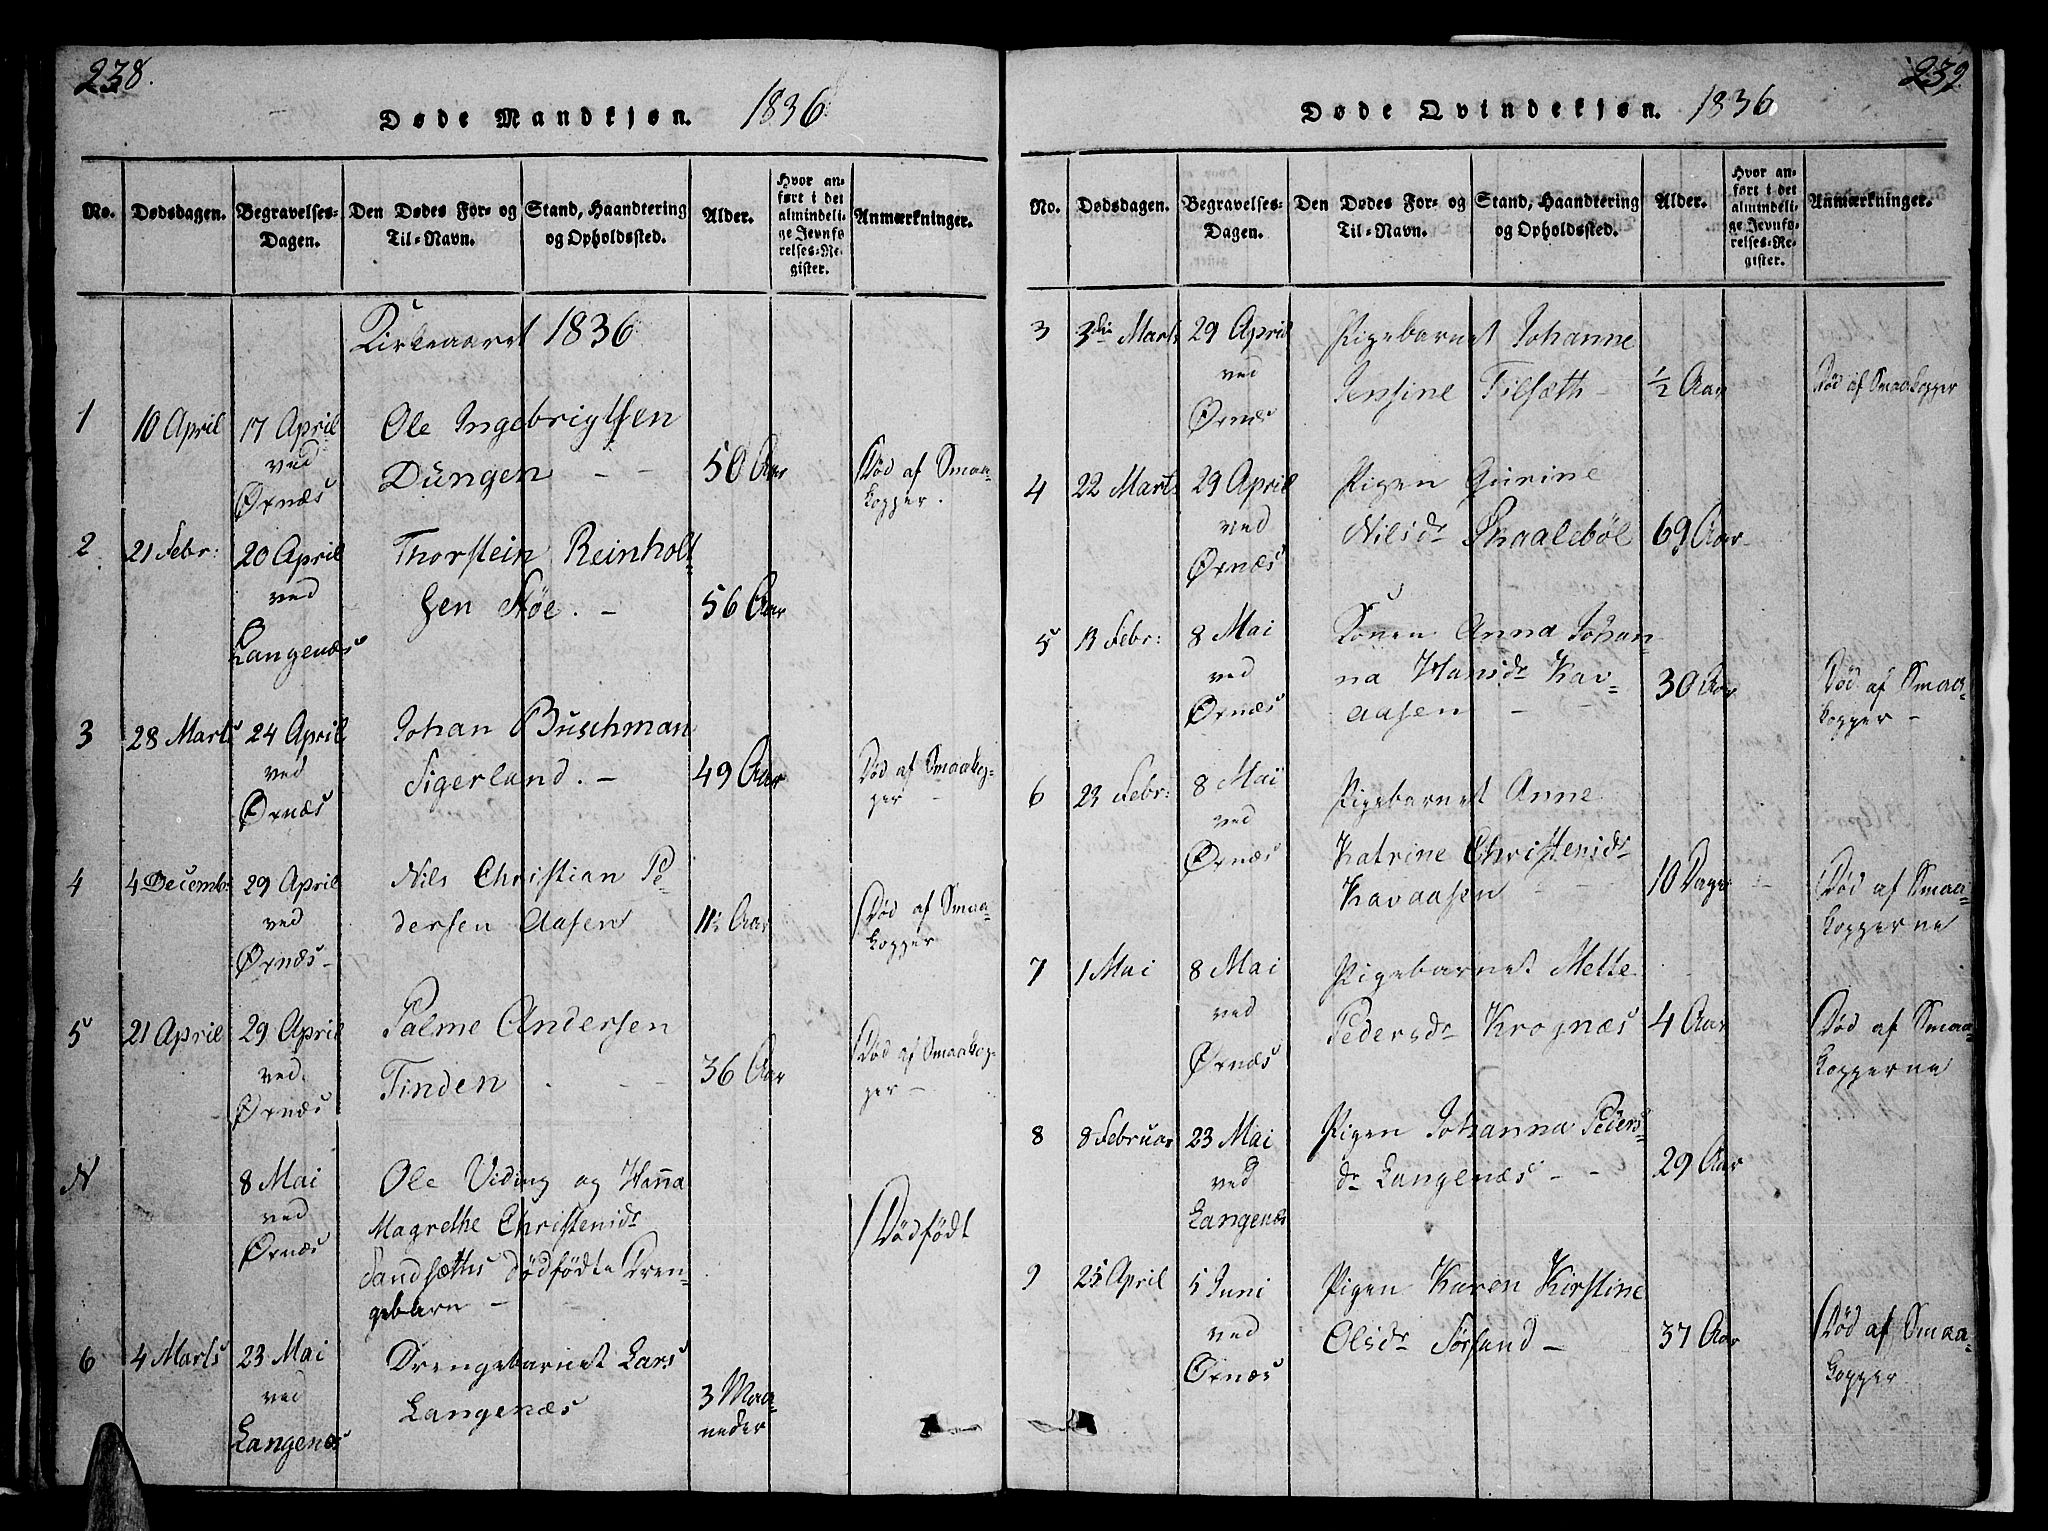 238.
Døde Mandkjøn. 1836
No.
Dødsdagen.
Begravelses-
Dagen.
Den Dødes For- og
Til-Navn.
Stand, Haandtering
og Opholdssted.
Alder.
Hvor an-
ført i det
almindeli-
ge Jevnfø-
relses-Re-
gister.
Anmærkninger.
Kirkeaaret 1836
1 10 April 17 April
ved
Ørnæs
Ole Ingebrigtsen
Düngen - -
50 Aar
Död af Smaa-
kopper.
2 21 Febr: 20 April
ved
Langenæs
Thorstein Reinholt-
sen Höe. -
56 Aar
3 28 Marts 24 April
ved
Ørnæs
Johan Buschman
Sigerland. -
49 Aar
Död af Smaakop-
per -
4 4 Decembr 29 April
ved
Ørnæs -
Nils Christian Pe-
dersen Aasen
11½ Aar
Död af Smaa-
kopper
5 21 April 29 April
ved
Ørnæs
Palme Andersen
Tinden - -
36 Aar
Död af Smaakop-
per -
N 8 Mai
ved
Ørnæs
Ole Viding og Hanna
Magrethe Christensdr
Sandsæths dödfödte Dren-
gebarn -
Dödfödt
6 4 Marts 23 Mai
ved
Langenæs
Drengebarnet Lars
Langenæs
3 Maa-
neder
239
Døde Qvindekjøn. 1836
No.
Dødsdagen.
Begravelses-
Dagen.
Den Dødes For- og
Til-Navn.
Stand, Haandtering
og Opholdssted.
Alder.
Hvor an-
ført i det
almindeli-
ge Jevnfø-
relses-Re-
gister.
Anmærkninger.
3 3die Marts 29 April
ved
Ørnæs
Pigebarnet Johanne
Jensine Tilsæth -
½ Aar
Död af Smaakopper
4 22 Marts 29 April
ved
Ørnæs
Pigen Gurine
Nilsdr Skaaleböl
69 Aar
5 13 Febr: 8 Mai
ved
Ørnæs
Konen Anna Johan-
na Hansdr Kav-
aasen - -
30 Aar
Död af Smaa-
kopper -
6 23 Febr: 8 Mai
ved
Ørnæs
Pigebarnet Anne
Katrine Christensdr
Kavaasen - -
10 Dage
Död af Smaa-
kopperne
7 1 Mai 8 Mai
ved
Ørnæs
Pigebarnet Mette
Pedersdr Krognæs
4 Aar
Död af Smaa-
kopperne
8 8 Februar 23 Mai
ved
Langenæs
Pigen Johanna Peders-
dr Langenæs - -
29 Aar
9 25 April 5 Juni
ved
Ørnæs
Pigen Karen Kirstine
Olsdr Sørsand -
37 Aar
Död af Smaa-
kopper